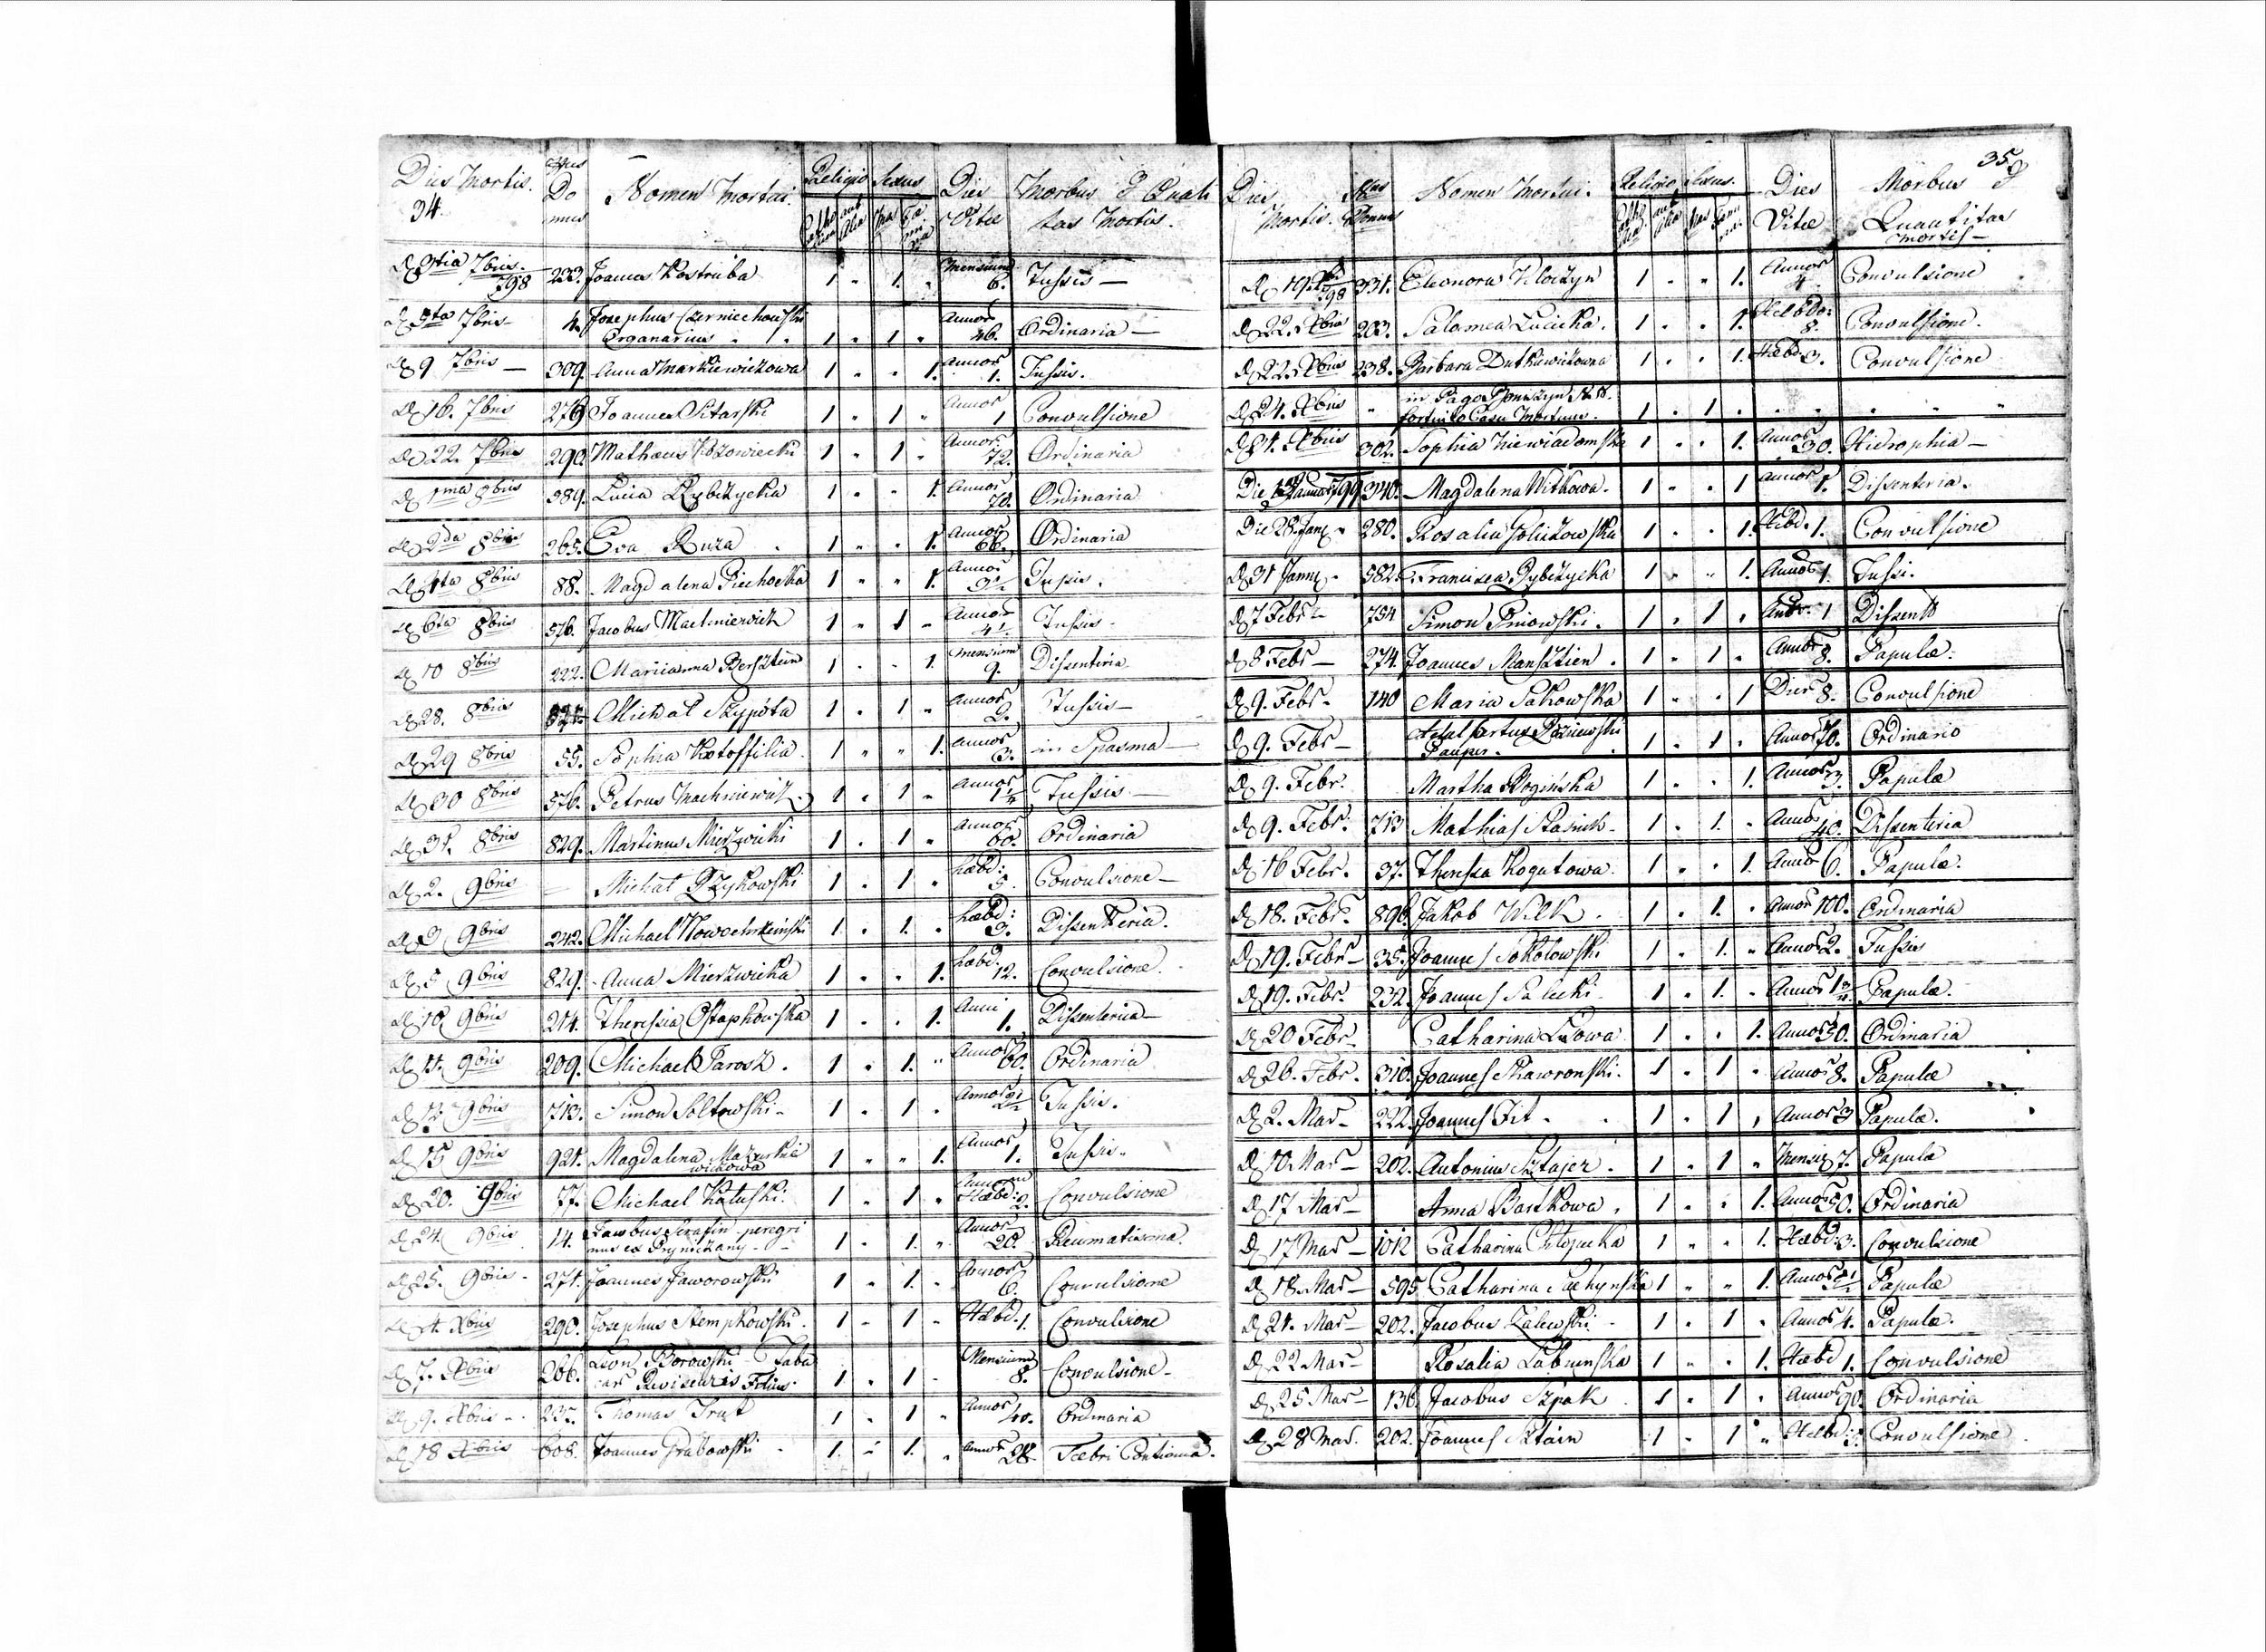 Dies Mortis.
34.
Nrus
Do
mus
Nomen Mortui.
Religio
Catho
lica
aut
Alia
Sexus
Mas
Fæ
mi
na
Dies
Vitæ
Morbus & Quali
tas Mortis.
D 3tia 7bris 798 233. Joannes Kostruba 1 " 1. " Mensium 6. Tussis —
D 5ta 7bris — 4. Josephus Czerniechowski
Organarius 1 " 1 " Annor 46. Ordinaria —
D 9 7bris — 309. Anna Markiewiczowa 1 " " 1. Annor 1. Tussis.
D 16. 7bris 276 Joannes Sitarski 1 " 1 " Annor 1 Convulsione
D 22. 7bris 290. Mathæus Kozowiecki 1 " 1 " Annor: 72. Ordinaria
D 1ma 8bris 389. Lucia Rybczycka 1 " " 1. Annor 70. Ordinaria
D 2da 8bris 265. Eva Ruza 1 " " 1. Annor 66. Ordinaria
D 4ta 8bris 88. Magdalena Piechocka 1 " " 1. Annor 3½ Tussis.
D 6ta 8bris 576. Jacobus Machniewich 1 " 1 " Annor 4½ Tussis.
D 10 8bris 222. Marianna Bersztein 1 " " 1. Mensium 9. Dissenteria
D 28. 8bris Michał Szypota 1 " 1 " Annor 2. Tussis —
D 29 8bris 55. Sophia Kstoffilia 1 " " 1. Annor 3. in Spasma —
D 30 8bris 576. Petrus Machniewicz 1 " 1 " Annor 1¼ Tussis —
D 31. 8bris 829. Martinus Mierzwicki 1 " 1 " Annor 60. Ordinaria
D 2. 9bris — Michał Rzykowski 1 " 1 " hæbd: 5. Convulsione —
D 3 9bris 242. Michael Nowochrzciński 1 " 1. " hæbd: 3. Dissenteria.
D 5 9bris 829. Anna Mierzwicka 1 " " 1. hæbd: 12. Convulsione.
D 10 9bris 214. Theressia Ostaphowska 1 " " 1. Anni 1. Dissenteria —
D 11. 9bris 209. Michael Jarosz. 1 " 1. " Annor 60. Ordinaria
D 12 9bris 713. Simon Soltowski 1 " 1 " Annor 2½ Tussis.
D 15 9bris 921. Magdalena Mazurkie
wiczowa 1 " " 1. Annor 1. Tussis.
D 20. 9bris 77. Michael Kaluski 1 " 1 " Hæbd: 2. Convulsione
D 24. 9bris 14. Jacobus Serafin peregri
nus ex Pryniczany 1 " 1. " Annor 20. Reumatisma.
D 25. 9bris 271. Joannes Jaworowski 1 " 1. " Annor 6. Convulsione
D 4. Xbris 290. Josephus Stempkowski. 1 " 1 " Hæbd. 1. Convulsione
D 7. Xbris 206. Leon Borowski Taba
car Revisoris Filius. 1 " 1 " Mensium 8. Convulsione —
D 9. Xbris 235. Thomas Trut 1 " 1 " Annor 40. Ordinaria
D 18 Xbris 608. Joannes Grabowski 1. " 1. " Annor 28 Fæbri Continua.
35
Dies
Mortis.
Nrus
Domus
Nomen Mortui.
Religio
Catho
lica
aut
alia
Sexus.
Mas
Fæmi
na
Dies
Vitæ
Morbus &
Quantitas
Mortis —
D 19. Xbr 798 331. Eleonora Kloczyn 1 " " 1. Annor 4 Convulsione
D 22. Xbris 233. Salomea Lucicka. 1 " " 1. Hebdo: 8. Convulsione.
D 22. Xbris 238. Barbara Dutkiewiczowna 1 " " 1. Hæbd 3. Convulsione
D 24. Xbris " in Pago N: N.
fortuito Casu Mortuus. 1 " 1 " " " "
D 31. Xbris 302. Sophia Niewiadomska 1 " " 1. Annor 30. Hidrophia —
Die Januar 799 340. Magdalena Witkowa. 1 " " 1 Annor 1. Dissenteria.
Die 28. Jan 280. Rosalia Goliczowska 1 " " 1. Hebd. 1. Convulsione
D 31 Janu 582. Francisca Rybczycka 1 " " 1. Annor 1. Tussi.
D 7 Febr 754 Simon Gniowski. 1 " 1 " Annor 1 Dissent
D 8 Febr — 274. Joannes Mansztien. 1 " 1 " Annor 8. Papulæ:
D 9. Febr. 140 Maria Sakowska 1 " " 1 Dier 8. Convulsione
D 9. Febr — Adalbertus Rozniewski
Pauper. 1 " 1 " Annor 70. Ordinario
D 9. Febr. Martha Rogińska 1 " " 1. Annor 3. Papulæ
D 9. Febr: 713 Mathias Stasiuk 1 " 1. " Annor 40. Dissenteria
D 16 Febr. 37. Theressa Kogutowa 1 " " 1. Annor 6. Papulæ.
D 18. Febr. 896. Jakob Wilk. 1 " 1. " Annor 100. Ordinaria
D 19. Febr — 35. Joannes Sokołowski 1 " 1. " Annor 2. Tussis
D 19. Febr. 232. Joannes Salecki 1 " 1. " Annor 1¾ Papulæ.
D 20 Febr. Catharina Lisowa 1 " " 1. Annor 30. Ordinaria
D 26. Febr. 310. Joannes Skawronski. 1 " 1 " Annor 8. Papulæ
D 2. Mar — 222. Joannes Fit 1 " 1 " Annor 3 Papulæ.
D 10 Mar — 202. Antonius Sztajer. 1 " 1 " Mensiu 7. Papulæ
D 17 Mar — Anna Bartkowa. 1 " " 1. Annor 50. Ordinaria
D 17 Mar — 1012 Catharina Chłopecka 1 " " 1. Hæbd: 3. Convulsione
D 18. Mar — 595 Catharina Pachynska 1 " " 1. Annor 2½ Papulæ
D 21. Mar — 202. Jacobus Zalewski 1 " 1 " Annor 4. Papulæ.
D 22 Mar — Rosalia Labunska 1 " " 1. Hæbd 1. Convulsione
D 25 Mar — 136. Jacobus Szpak 1 " 1 " Annor 90. Ordinaria
D 28 Mar. 202. Joannes Sztain 1 " 1 " Hebd: Convulsione